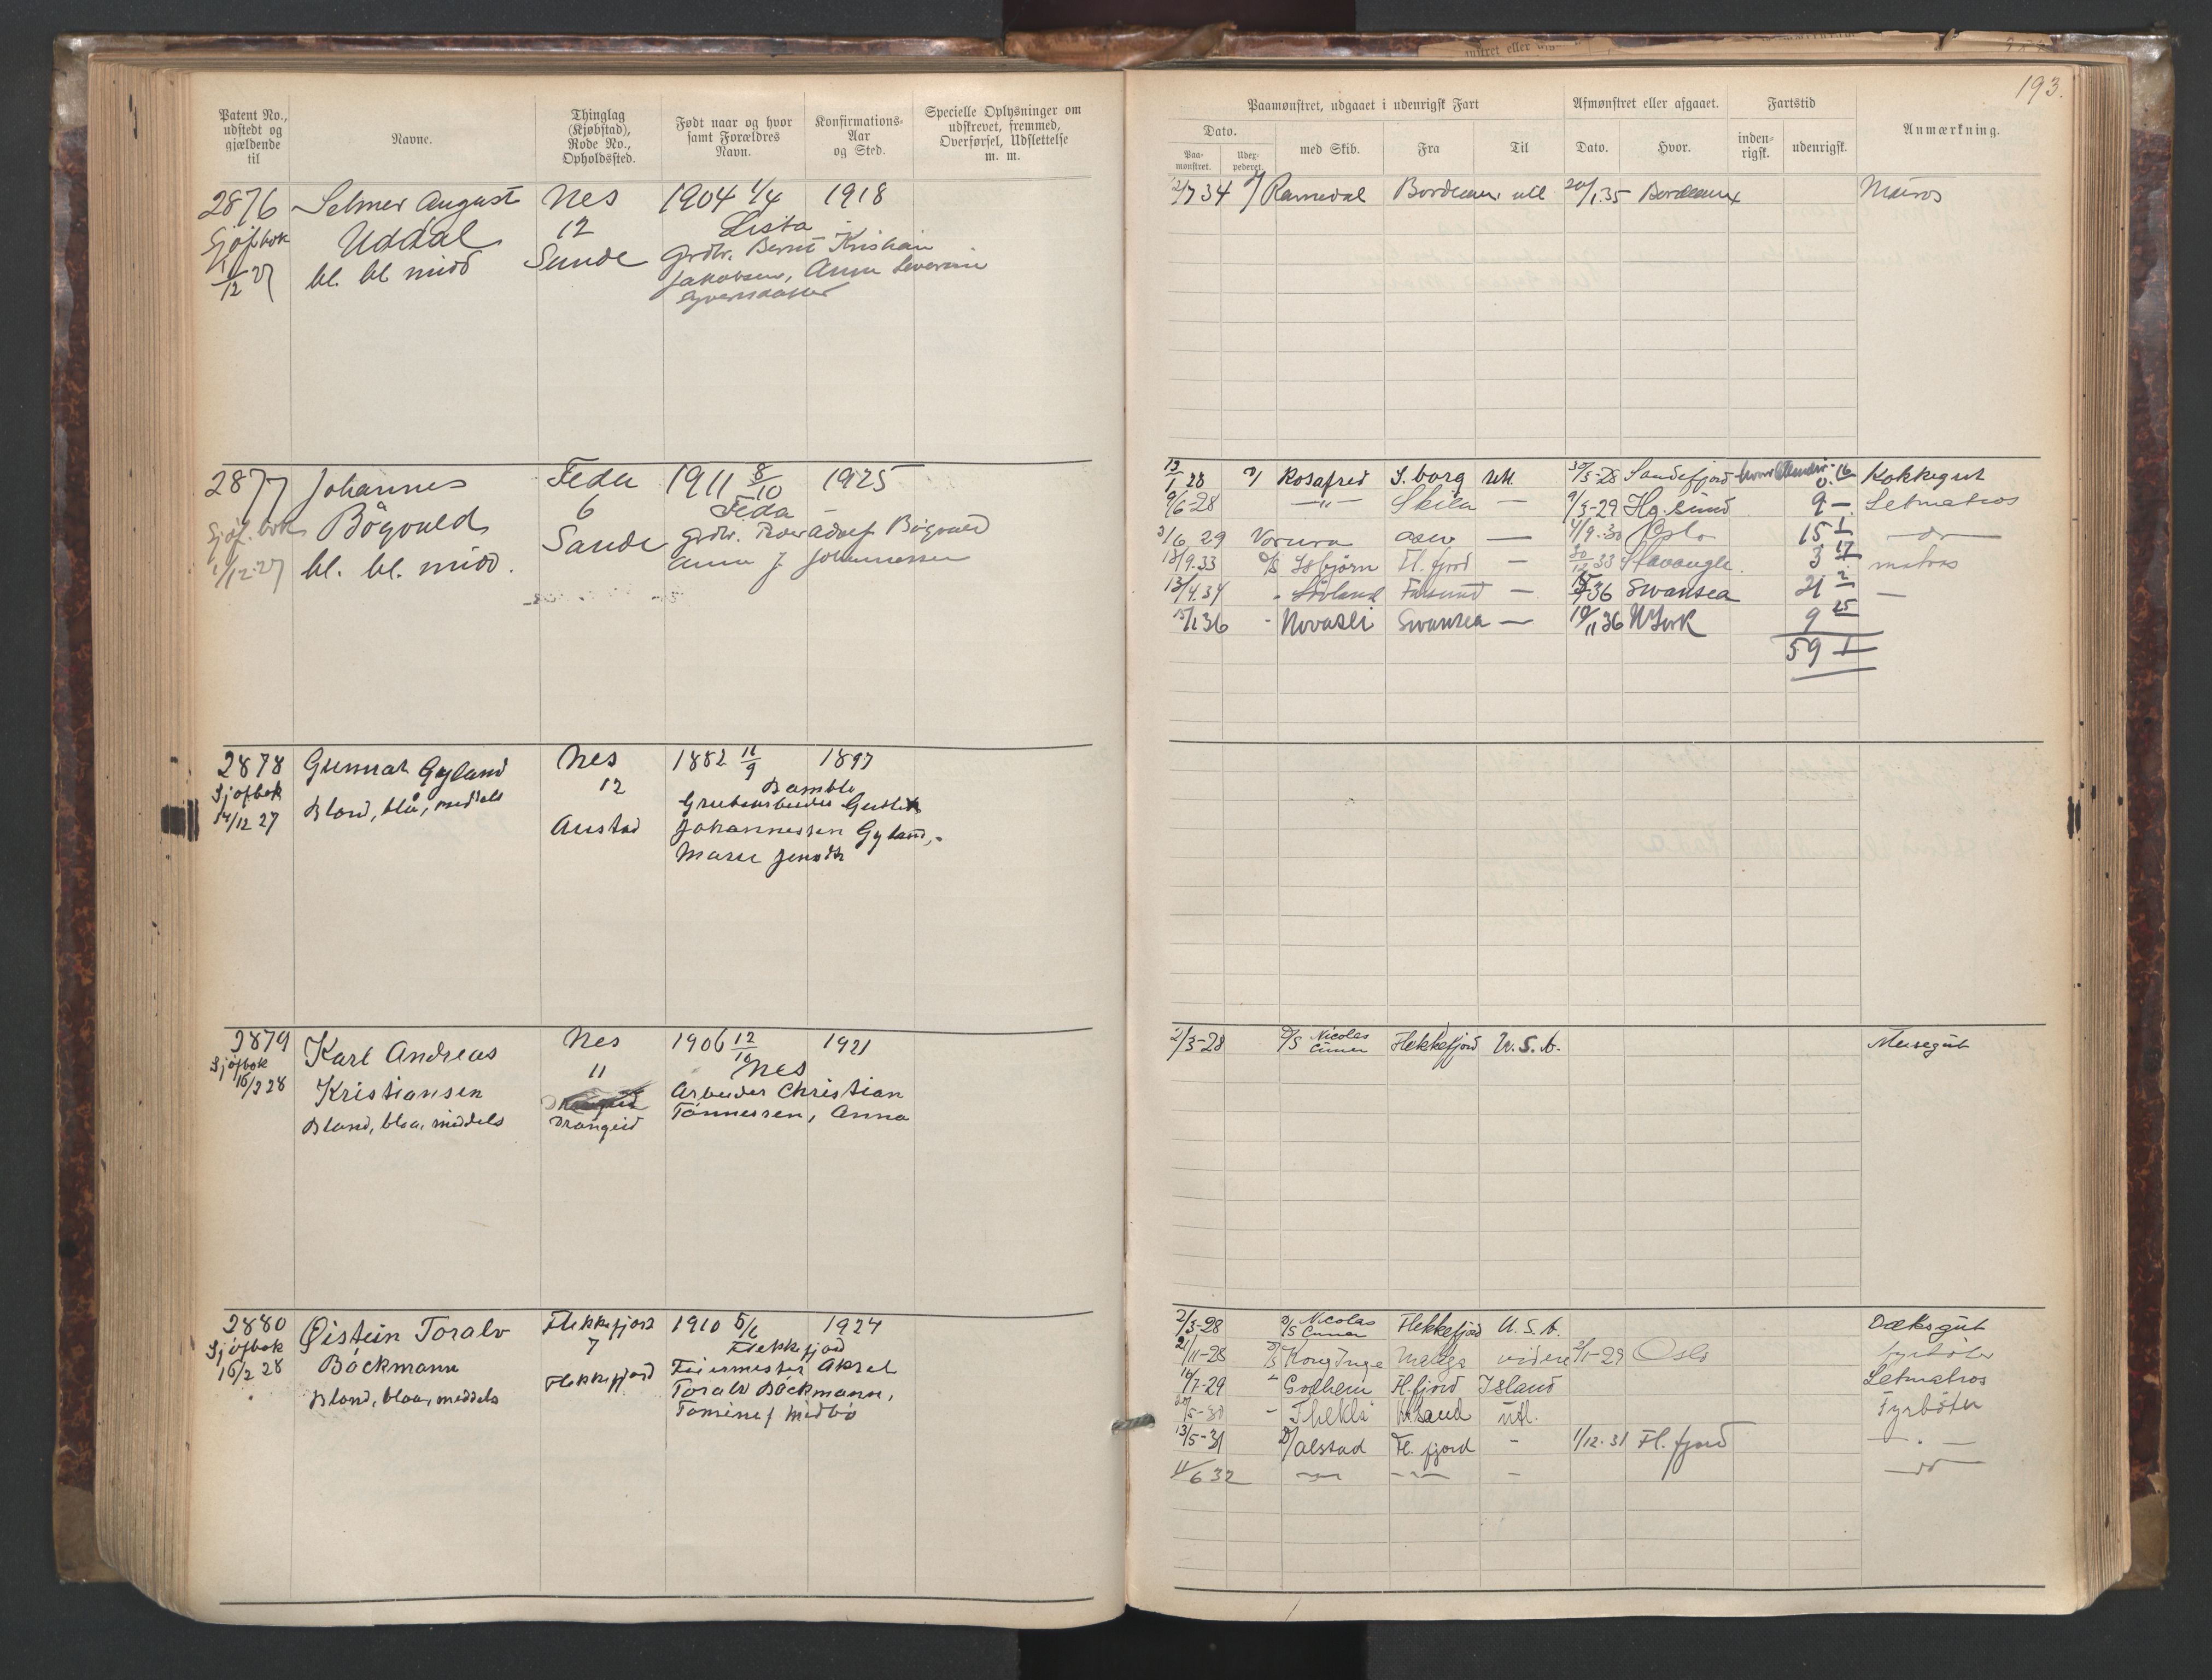 193.
Patent No., udstedt og gjældende til
Navne.
Thinglag (Kjøbstad), Rode No., Opholdssted.
Født naar og hvor samt Forældres Navn.
Konfirmations-Aar og Sted.
Specielle Oplysninger om udskrevet, fremmed, Overførsel, Udslettelse m. m.
Paamønstret, udgaaet i udenrigsk Fart
Afmønstret eller afgaaet.
Fartstid
Anmærkning.
Dato.
Paa-mønstret.
Udex-pederet.
med Skib.
Fra
Til
Dato.
Hvor.
inden-rigsk.
udenrigsk.
2876 Selmer August Nes 1904 1/4 1918
Sjøfbok Uddal 12 Lista
1/12 27 bl. bl midd Sunde Grdbr. Bernt Kristian
Jakobsen, Anna Severine
2/7 34 Ramdal Bordeaux utl 20/1.35 Bordeaux Matros
2877 Johannes Feda 1911 8/10 1925
Sjøf. bok Bøgvald 6 Feda
1/12-27 bl. bl. midd. Sande Grdbr. Peder Adolf Bøgvald
Anna J. Johannessen
13/1 28 Rosafred S.borg utl. 30/5-28 Sandefjord 0. 16 Kokkegut
9/6-28 —"— Skien — 9/3-29 Hg.sund 9 — Letmatros
3/6 29 Oslo — 4/9-30 Oslo 15 1 — do —
18/9.33 D/S Isbjørn Fl. fjord — 30/12 33 Stavanger. 3 17 matros
13/4.34 Farsund — 36 Swansea 21 2 —
15/1 36 Novasli Swansea — 10/11 36 N York 9 25
59 1
2878 Gunnar Gyland Nes 1882 11/9 1897
Sjøfbok Blond, blå, middels 12 Bamble
14/12 27 Grubearbeider
Austad Johannessen Gyland,
2879 Karl Andreas Nes 1906 12/10 1921
Sjøfbok 11 Nes
16/2 28 Kristiansen Arbeider Christian
Blond, blaa, middels Drangeid Tønnessen, Anna
2/3-28 D/S Nicolas Cuner Flekkefjord U.S.A. Messegut
2880 Øistein Toralv Flekkefjord 1910 5/6 1924
Sjøfbok 7 Flekkefjord
16/2 28 Bøckmann Flekkefjord Feiermester Aksel
Blond, blaa, middels Toralv Bøckmann,
Tomine f Midbø
2/3-28 D/S Nicolas Cuner Flekkefjord U.S.A. Dæksgut
21/11-28 D/S Kong Inge Malaga videre 2/1-29 Oslo fyrbøter
14/7-29 " Solheim Fl.fjord Island Letmatros
5-30 — Thekla Kr.sand utl. Fyrbøter
13/5-31 D/ Alstad Fl. fjord - 1/12-31 Fl. fjord — " —
11/6 32 — " — — " — - — do